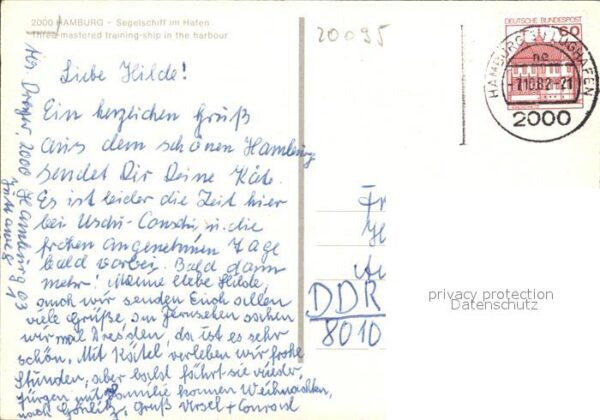 2000 HAMBURG – Segelschiff im Hafen
Three-mastered training-ship in the harbour
20095
DEUTSCHE BUNDESPOST
60
HAMBURG FLUGHAFEN
-7.10.82-21
2000
Liebe Hilde!
Ein herzlichen Gruß
aus dem schönen Hamburg
sendet Dir Deine Käte.
Es ist leider die Zeit hier
bei Uschi-Conschi, u. die
frohen angenehmen Tage
bald vorbei. Bald dann
mehr! Meine liebe Hilde,
auch wir senden Euch allen
viele Grüße. Im Fernsehen sahen
wir mal Dresden, da ist es sehr
schön. Mit Kätel verleben wir frohe
Stunden, aber bald fährt sie wieder,
Jürgen mit Familie kommen Weihnachten,
nach Görlitz, Gruß Ursel + Conrad
2000 Hamburg
DDR
8010
privacy protection
Datenschutz